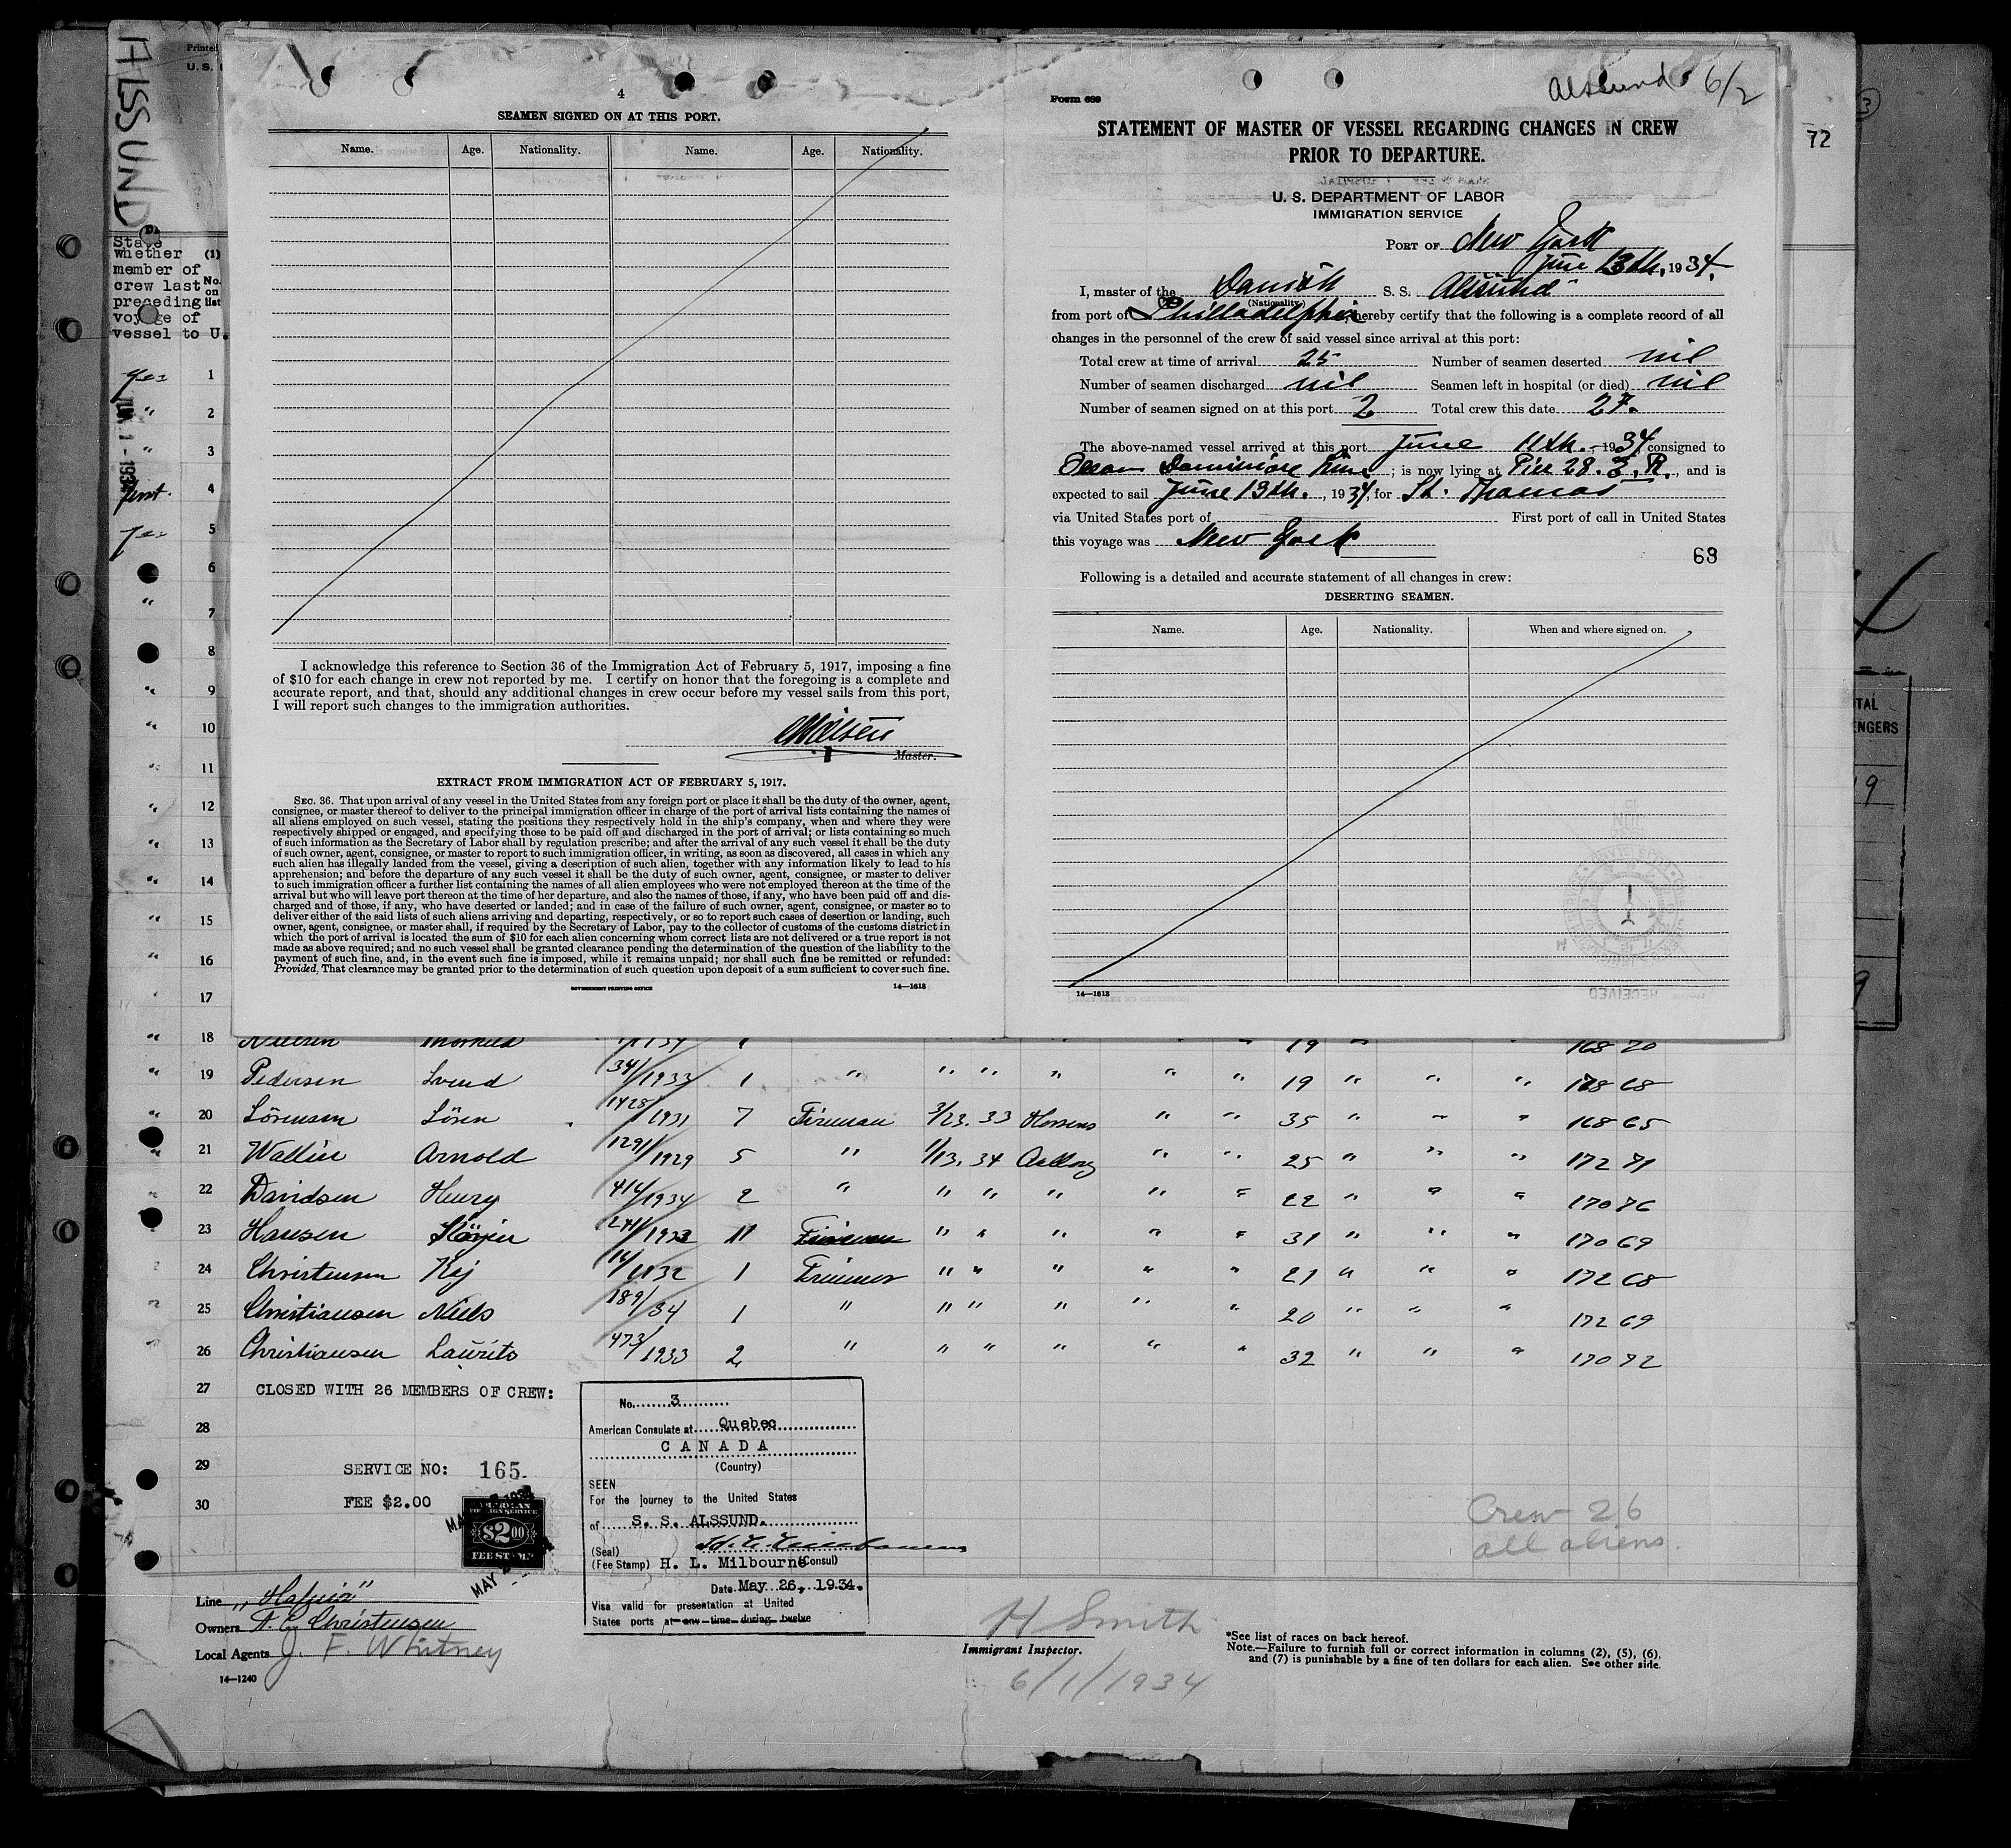 ALSSUND
Printed
U. S.
State
whether (1)
member of
crew last No.
preceding on list
voyage of
vessel to U.
72
3
4
SEAMEN SIGNED ON AT THIS PORT.
Name. Age. Nationality. Name. Age. Nationality.
I acknowledge this reference to Section 36 of the Immigration Act of February 5, 1917, imposing a fine
of $10 for each change in crew not reported by me. I certify on honor that the foregoing is a complete and
accurate report, and that, should any additional changes in crew occur before my vessel sails from this port,
I will report such changes to the immigration authorities.
Master.
EXTRACT FROM IMMIGRATION ACT OF FEBRUARY 5, 1917.
SEC. 36. That upon arrival of any vessel in the United States from any foreign port or place it shall be the duty of the owner, agent,
consignee, or master thereof to deliver to the principal immigration officer in charge of the port of arrival lists containing the names of
all aliens employed on such vessel, stating the positions they respectively hold in the ship's company, when and where they were
respectively shipped or engaged, and specifying those to be paid off and discharged in the port of arrival; or lists containing so much
of such information as the Secretary of Labor shall by regulation prescribe; and after the arrival of any such vessel it shall be the duty
of such owner, agent, consignee, or master to report to such immigration officer, in writing, as soon as discovered, all cases in which any
such alien has illegally landed from the vessel, giving a description of such alien, together with any information likely to lead to his
apprehension; and before the departure of any such vessel it shall be the duty of such owner, agent, consignee, or master to deliver
to such immigration officer a further list containing the names of all alien employees who were not employed thereon at the time of the
arrival but who will leave port thereon at the time of her departure, and also the names of those, if any, who have been paid off and dis-
charged and of those, if any, who have deserted or landed; and in case of the failure of such owner, agent, consignee, or master so to
deliver either of the said lists of such aliens arriving and departing, respectively, or so to report such cases of desertion or landing, such
owner, agent, consignee, or master shall, if required by the Secretary of Labor, pay to the collector of customs of the customs district in
which the port of arrival is located the sum of $10 for each alien concerning whom correct lists are not delivered or a true report is not
made as above required; and no such vessel shall be granted clearance pending the determination of the question of the liability to the
payment of such fine, and, in the event such fine is imposed, while it remains unpaid; nor shall such fine be remitted or refunded:
Provided, That clearance may be granted prior to the determination of such question upon deposit of a sum sufficient to cover such fine.
GOVERNMENT PRINTING OFFICE 14—1613
Form 689
Alssund 6/2
STATEMENT OF MASTER OF VESSEL REGARDING CHANGES IN CREW
PRIOR TO DEPARTURE.
U. S. DEPARTMENT OF LABOR
IMMIGRATION SERVICE
PORT OF New York
June 13th, 1934.
I, master of the Danish S. S. Alssund
(Nationality)
from port of Philladelphia hereby certify that the following is a complete record of all
changes in the personnel of the crew of said vessel since arrival at this port:
Total crew at time of arrival 25 Number of seamen deserted nil
Number of seamen discharged nil Seamen left in hospital (or died) nil
Number of seamen signed on at this port 2 Total crew this date 27.
The above-named vessel arrived at this port June 11th. 1934, consigned to
Ocean Dominion Line; is now lying at Pier 28. E. R., and is
expected to sail June 13th., 1934, for St. Thomas
via United States port of First port of call in United States
this voyage was New York
63
Following is a detailed and accurate statement of all changes in crew:
DESERTING SEAMEN.
Name. Age. Nationality. When and where signed on.
14—1613
RECEIVED
TAL
ENGERS
9
9
Yes 1
" 2
" 3
first. 4
Yes 5
6
" 7
8
" 9
" 10
" 11
" 12
" 13
" 14
" 15
" 16
17
JUN 1 - 1934
" 18 Nielsen Thorkild 1 " 19 " " 168 70
" 19 Pedersen Svend 34/1933 1 " " " " " " 19 " " " 168 68
" 20 Sörensen Sören 1428/1931 7 Fireman 3/23. 33 Horsens " " 35 " " " 168 65
" 21 Wallin Arnold 1291/1929 5 " 1/13. 34 Aalborg " " 25 " " " 172 71
" 22 Davidsen Henry 414/1934 2 " " " " " " 22 " " " 170 76
" 23 Hansen 241/1933 11 Fireman " " " " " 31 " " " 170 69
" 24 Christensen Kaj 14/1132 1 Trimmer " " " " " 21 " " " 172 68
" 25 Christiansen Niels 189/34 1 " " " " " " 20 " " " 172 69
" 26 Christiansen Laurits 473/1933 2 " " " " " " 32 " " " 170 72
27 CLOSED WITH 26 MEMBERS OF CREW:
28
29 SERVICE NO: 165.
30 FEE $2.00
AMERICAN
FOREIGN SERVICE
$2.00
FEE STAMP
MAY
No. 3
American Consulate at Quebec
CANADA
(Country)
SEEN
For the journey to the United States
of S. S. ALSSUND.
(Seal)
(Fee Stamp) H. L. Milbourne (Consul)
Date May 26, 1934.
Visa valid for presentation at United
States ports at any time during twelve
Crew 26
all aliens.
Line „Hafnia"
Owners A. C. Christensen
Local Agents J. F. Whitney
14—1240
H Smith
Immigrant Inspector.
6/1/1934
*See list of races on back hereof.
Note.—Failure to furnish full or correct information in columns (2), (5), (6),
and (7) is punishable by a fine of ten dollars for each alien. See other side.